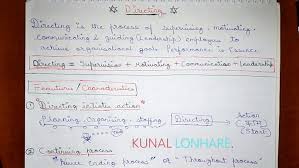 Directing
Directing is the process of supervising, motivating,
communicating & guiding (Leadership) employees to
achieve organisational goals. Performance is Essence
Directing = Supervision + Motivating + Communication + Leadership
Features / Characteristics
1) Directing initiate action
Planning, organising, staffing Directing Action
(Start)
KUNAL LONHARE.
2) Continuing process
"Never ending process" or "Throughout process"